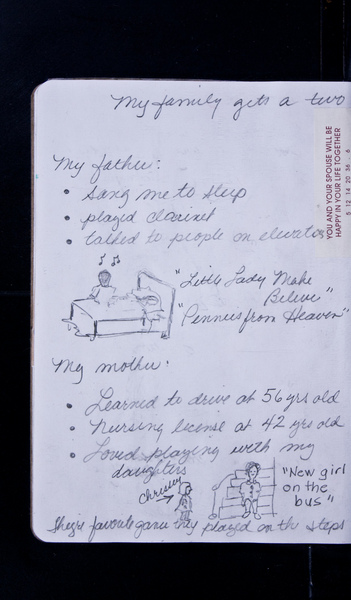 My family gets a two
My father:
• Sang me to sleep
• played clarinet
• talked to people on elevators
"Little Lady Make
Believe"
"Pennies from Heaven"
My mother:
• Learned to drive at 56 yrs old
• Nursing license at 42 yrs old
• Loved playing with my
daughters
Chrissy
"New girl
on the
bus"
favorite game they played on the steps
YOU AND YOUR SPOUSE WILL BE
HAPPY IN YOUR LIFE TOGETHER